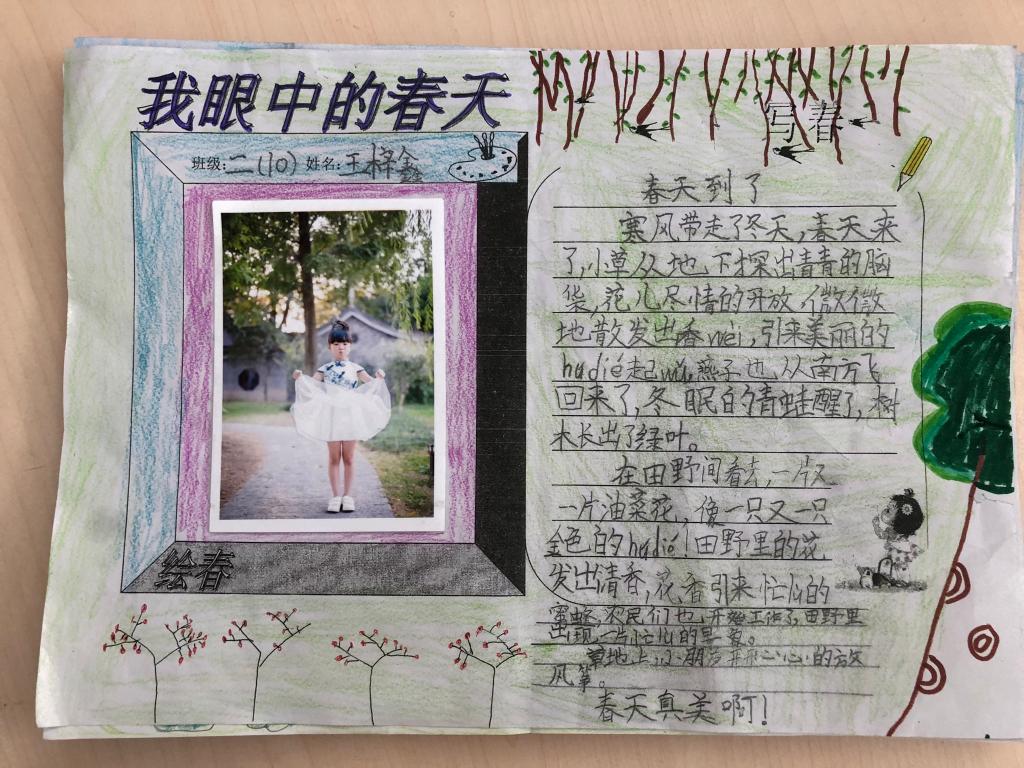 我眼中的春天
班级:二(10) 姓名:王梓鑫
绘春
写春
春天到了
寒风带走了冬天,春天来
了,小草从地下探出青青的脑
袋,花儿尽情的开放,微微
地散发出香wei,引来美丽的
hudié起wu,燕子也从南方飞
回来了,冬眠的青蛙醒了,树
木长出了绿叶。
在田野间看去,一片又
一片油菜花,像一只又一只
金色的hudié!田野里的花
发出清香,花香引来忙忙的
蜜蜂,农民们也开始工作了,田野里
出现一片忙忙的景象。
草地上,小朋友开开心心的放
风筝。
春天真美啊!